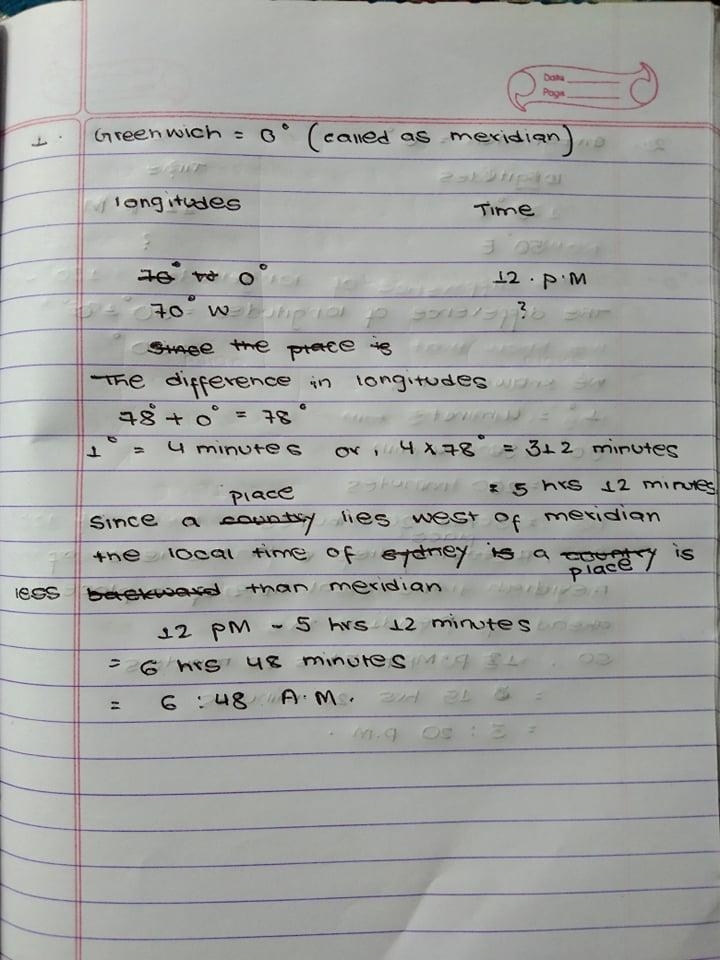 Date
Page
1. Greenwich = 0° (called as meridian)
longitudes Time
0° 12.P.M
70° W ?
since the place is
The difference in longitudes
78° + 0° = 78°
1° = 4 minutes or, 4 x 78° = 312 minutes
= 5 hrs 12 minutes
place
since a country lies west of meridian
the local time of sydney is a country is
place
less backward than meridian
12 PM - 5 hrs 12 minutes
= 6 hrs 48 minutes
= 6 : 48 A.M.